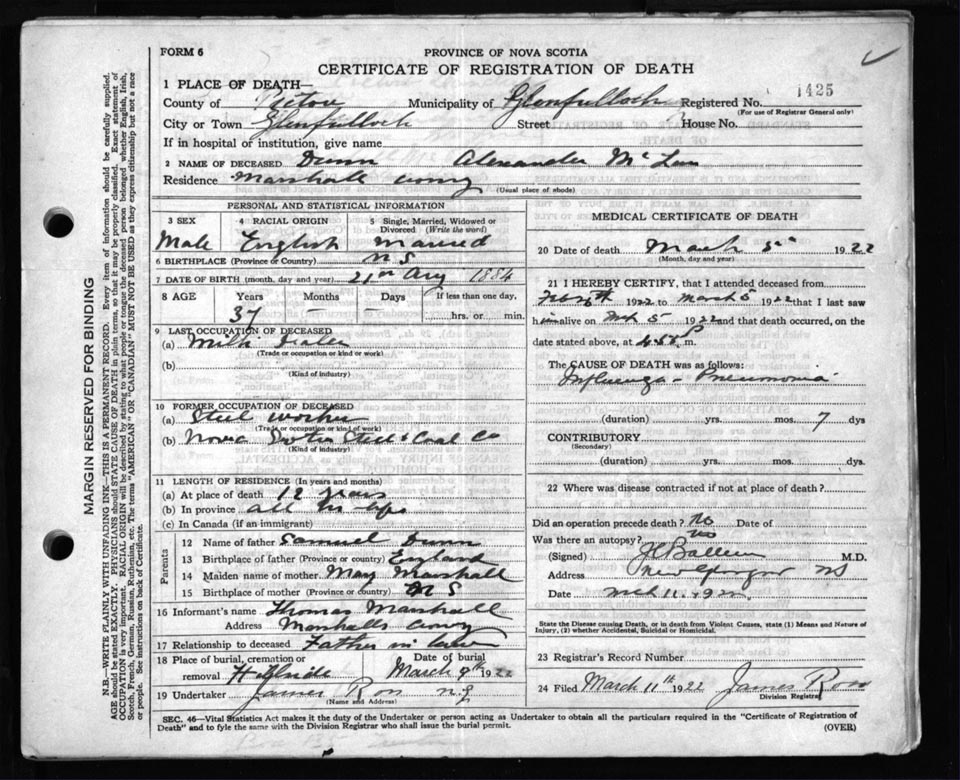 FORM 6
PROVINCE OF NOVA SCOTIA
CERTIFICATE OF REGISTRATION OF DEATH
1 PLACE OF DEATH—
1425
County of Pictou Municipality of Glenfulloch Registered No.
(For use of Registrar General only)
City or Town Glenfulloch Street House No.
If in hospital or institution, give name
2 NAME OF DECEASED Dunn Alexander McLean
Residence Marshall
(Usual place of abode)
PERSONAL AND STATISTICAL INFORMATION
3 SEX 4 RACIAL ORIGIN 5 Single, Married, Widowed or Divorced (Write the word)
Male English Married
6 BIRTHPLACE (Province or Country) N S
7 DATE OF BIRTH (month, day and year) 21st Aug 1884
8 AGE Years Months Days If less than one day,
37 — hrs. or min.
9 LAST OCCUPATION OF DECEASED
(a) Milk Dealer
(Trade or occupation or kind or work)
(b)
(Kind of industry)
10 FORMER OCCUPATION OF DECEASED
(a) Steel worker
(Trade or occupation or kind of work)
(b) Nova Scotia Steel & Coal Co
(Kind of industry)
11 LENGTH OF RESIDENCE (In years and months)
(a) At place of death 12 years
(b) In province all his life
(c) In Canada (if an immigrant)
Parents
12 Name of father Samuel Dunn
13 Birthplace of father (Province or country) England
14 Maiden name of mother May Marshall
15 Birthplace of mother (Province or country) N S
16 Informant's name Thomas Marshall
Address Marshalls
17 Relationship to deceased Father in law
18 Place of burial, cremation or removal Date of burial
March 9th 1922
19 Undertaker James Ross N.G
(Name and Address)
MEDICAL CERTIFICATE OF DEATH
20 Date of death March 5th 1922
(Month, day and year)
21 I HEREBY CERTIFY, that I attended deceased from
1922 to March 5 1922 that I last saw
him alive on Mch 5 1922 and that death occurred, on the
date stated above, at m.
The CAUSE OF DEATH was as follows:
Influenza - Pneumonia
(duration) yrs. mos. 7 dys
CONTRIBUTORY
(Secondary)
(duration) yrs. mos. dys.
22 Where was disease contracted if not at place of death?
Did an operation precede death? No Date of
Was there an autopsy? No
(Signed) M.D.
Address New Glasgow NS
Date Mch 11 1922
State the Disease causing Death, or in death from Violent Causes, state (1) Means and Nature of Injury, (2) whether Accidental, Suicidal or Homicidal.
23 Registrar's Record Number
24 Filed March 11th 1922 James Ross
Division Registrar
SEC. 46—Vital Statistics Act makes it the duty of the Undertaker or person acting as Undertaker to obtain all the particulars required in the "Certificate of Registration of
Death" and to fyle the same with the Division Registrar who shall issue the burial permit.
(OVER)
MARGIN RESERVED FOR BINDING
N.B.—WRITE PLAINLY WITH UNFADING INK—THIS IS A PERMANENT RECORD. Every item of information should be carefully supplied.
AGE should be stated EXACTLY. PHYSICIANS should STATE CAUSE OF DEATH in plain terms, so that it may be properly classified. Exact statement of
OCCUPATION is very important. RACIAL ORIGIN will be described by stating to what people or tongue the deceased person belonged whether English, Irish,
Scotch, French, German, Russian, Ruthenian, etc. The terms "AMERICAN" OR "CANADIAN" MUST NOT BE USED as they express citizenship but not a race
or people. See instructions on back of Certificate.